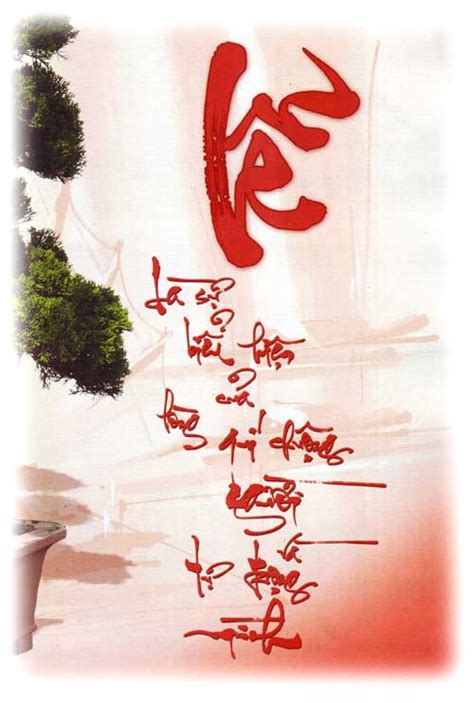 Lễ
là sự
biểu hiện
của
lòng quý trọng
người
và
tự trọng
mình